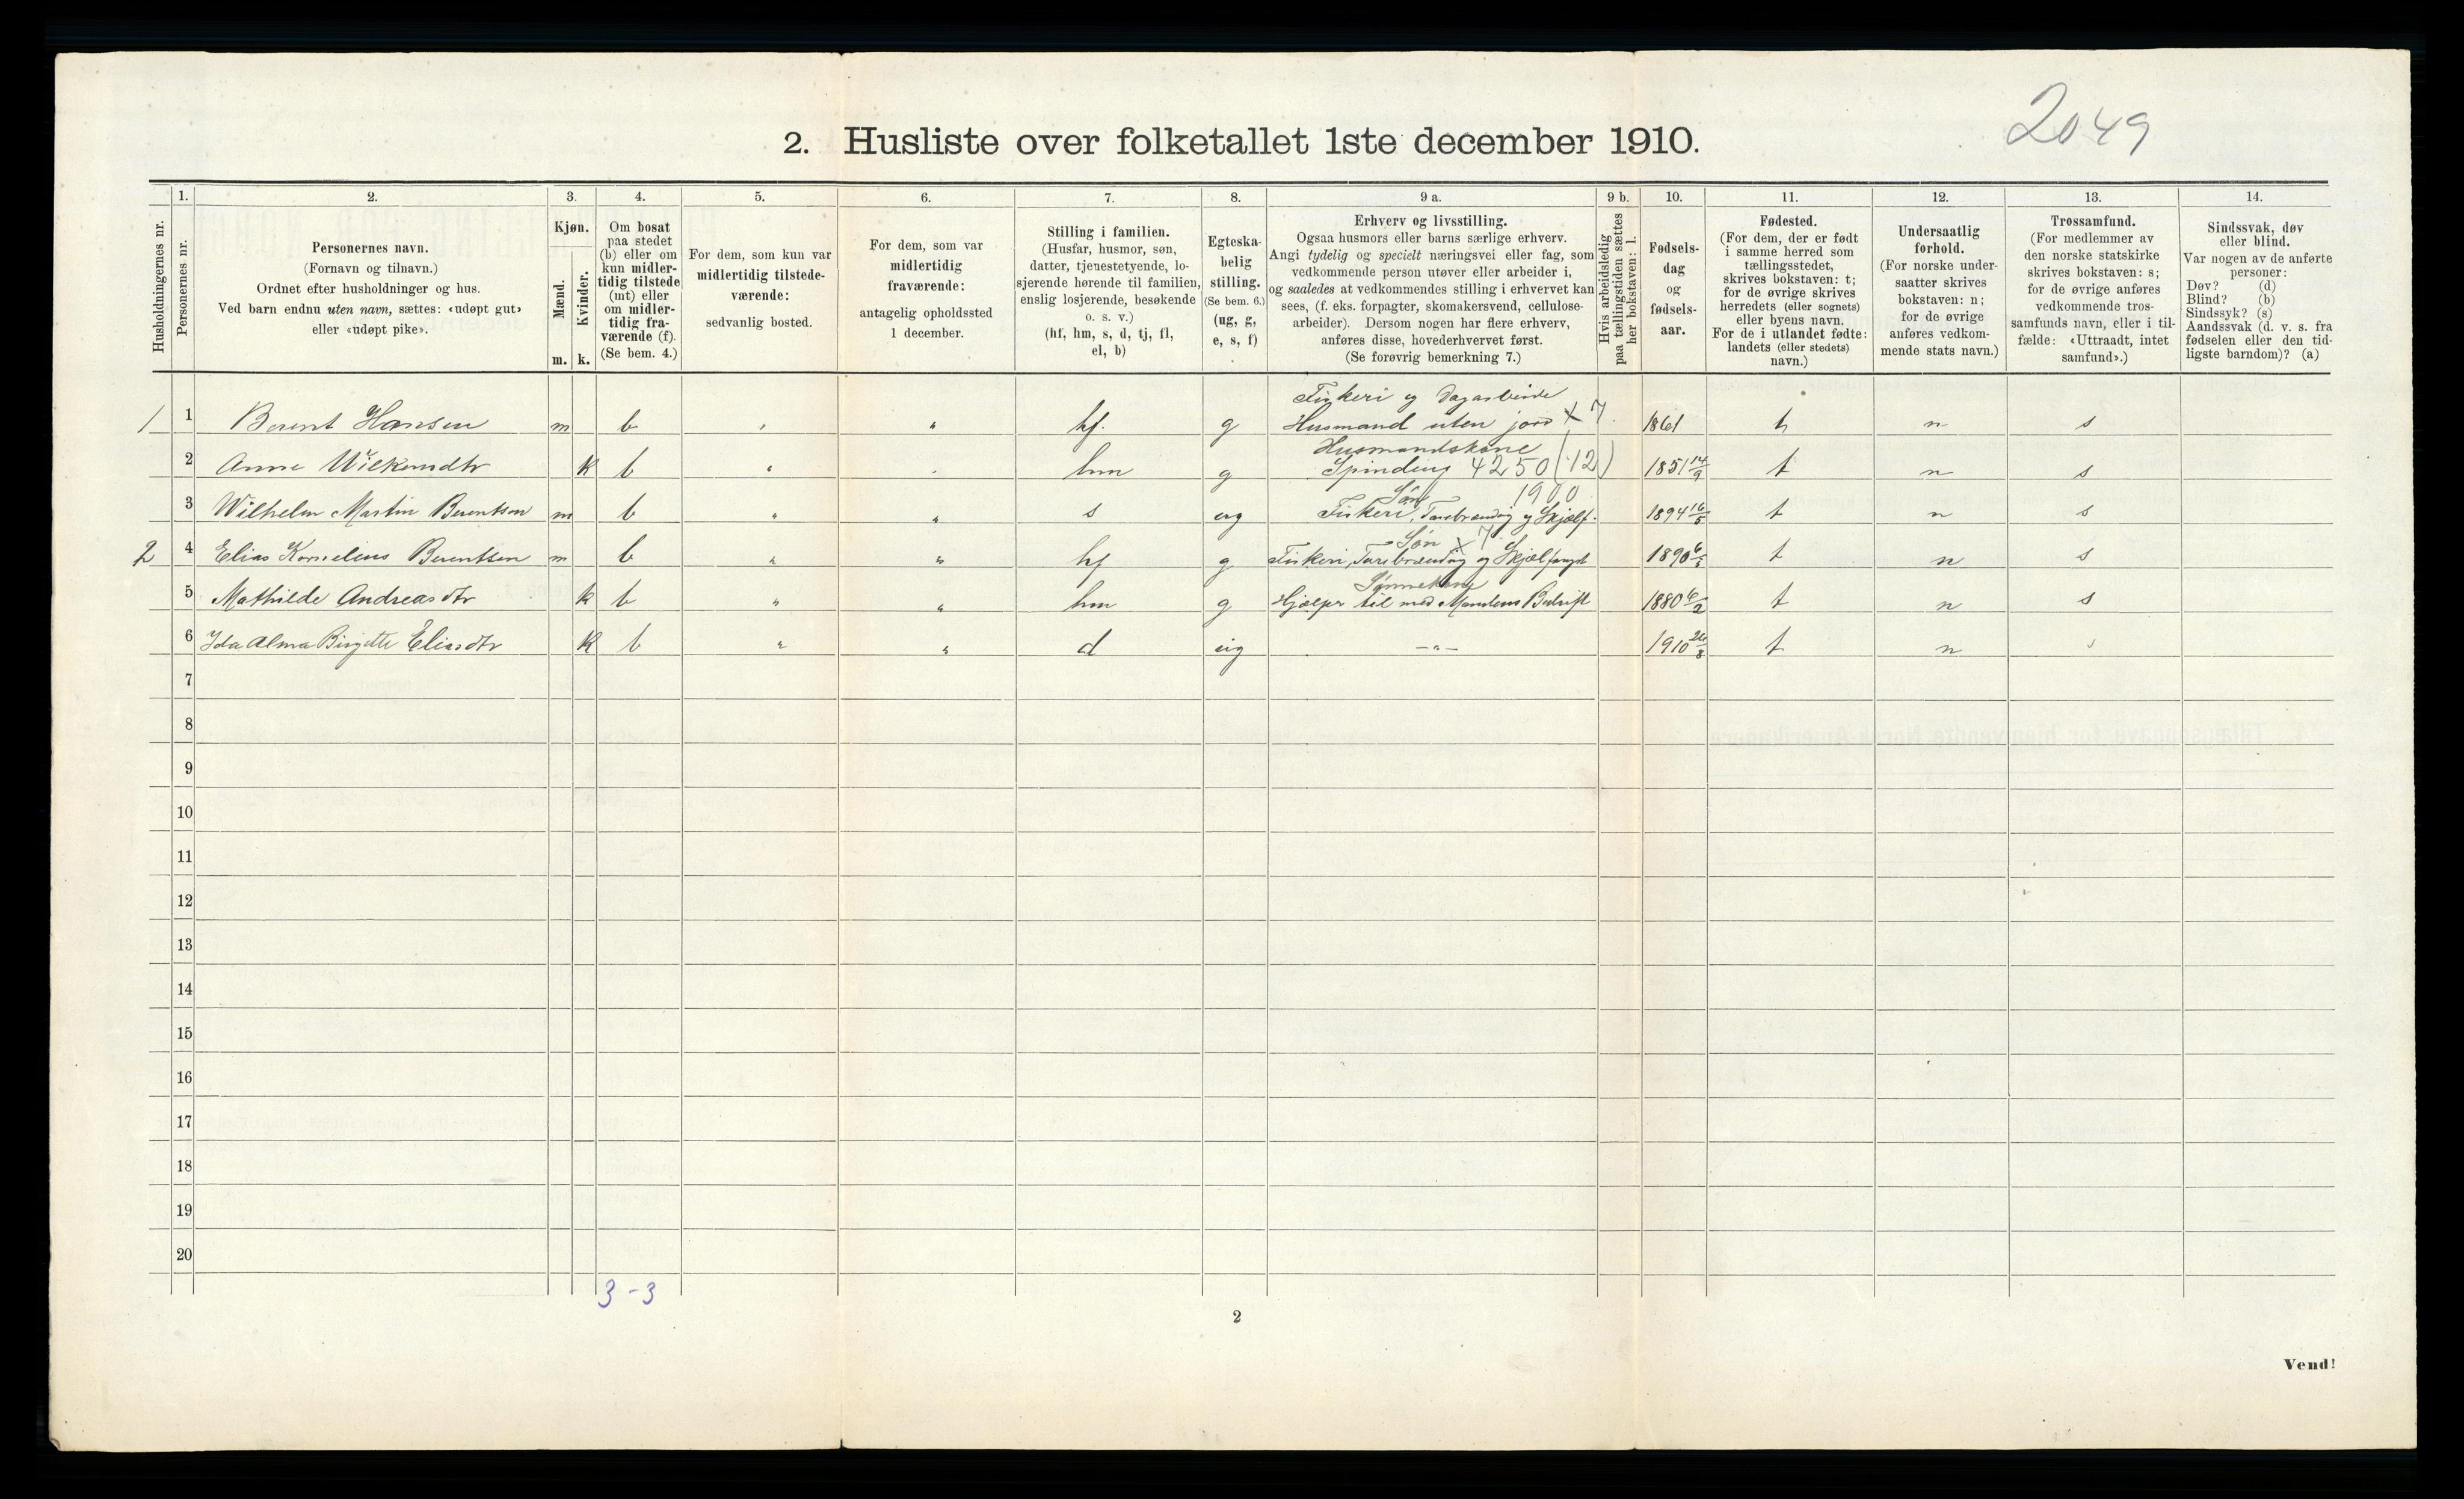 2049
2. Husliste over folketallet 1ste december 1910.
Husholdningernes nr.
1. Personernes nr.
2. Personernes navn.
(Fornavn og tilnavn.)
Ordnet efter husholdninger og hus.
Ved barn endnu uten navn, sættes: «udøpt gut»
eller «udøpt pike».
3. Kjøn.
Mænd. m.
Kvinder. k.
4. Om bosat
paa stedet
(b) eller om
kun midler-
tidig tilstede
(mt) eller
om midler-
tidig fra-
værende (f).
(Se bem. 4.)
5. For dem, som kun var
midlertidig tilstede-
værende:
sedvanlig bosted.
6. For dem, som var
midlertidig
fraværende:
antagelig opholdssted
1 december.
7. Stilling i familien.
(Husfar, husmor, søn,
datter, tjenestetyende, lo-
sjerende hørende til familien,
enslig losjerende, besøkende
o. s. v.)
(hf, hm, s, d, tj, fl,
el, b)
8. Egteska-
belig
stilling.
(Se bem. 6.)
(ug, g,
e, s, f)
9 a. Erhverv og livsstilling.
Ogsaa husmors eller barns særlige erhverv.
Angi tydelig og specielt næringsvei eller fag, som
vedkommende person utøver eller arbeider i,
og saaledes at vedkommendes stilling i erhvervet kan
sees, (f. eks. forpagter, skomakersvend, cellulose-
arbeider). Dersom nogen har flere erhverv,
anføres disse, hovederhvervet først.
(Se forøvrig bemerkning 7.)
9 b. Hvis arbeidsledig
paa tællingstiden sættes
her bokstaven: l.
10. Fødsels-
dag
og
fødsels-
aar.
11. Fødested.
(For dem, der er født
i samme herred som
tællingsstedet,
skrives bokstaven: t;
for de øvrige skrives
herredets (eller sognets)
eller byens navn.
For de i utlandet fødte:
landets (eller stedets)
navn.)
12. Undersaatlig
forhold.
(For norske under-
saatter skrives
bokstaven: n;
for de øvrige
anføres vedkom-
mende stats navn.)
13. Trossamfund.
(For medlemmer av
den norske statskirke
skrives bokstaven: s;
for de øvrige anføres
vedkommende tros-
samfunds navn, eller i til-
fælde: «Uttraadt, intet
samfund».)
14. Sindssvak, døv
eller blind.
Var nogen av de anførte
personer:
Døv? (d)
Blind? (b)
Sindssyk? (s)
Aandssvak (d. v. s. fra
fødselen eller den tid-
ligste barndom)? (a)
Fiskeri og Dagarbeide
1 1 Berent Hansen m b " " hf. g Husmand uten jord x 7. 1861 t n s
Husmandskone
2 Anne Wilkensdtr k b " " hm g Spinding 4250 (12) 1851 14/9 t n s
Søn 1900
3 Wilhelm Martin Berentsen m b " " s ug Fiskeri, Tarebrænding og Skjælf. 1894 16/5 t n s
Søn x 7
2 4 Elias Kornelius Berentsen m b " " hf g Fiskeri, Tarebrænding og Skjælfangst 1890 t n s
Sønnekone
5 Mathilde Andreasdtr k b " " hm g Hjælper til med Mandens Bedrift 1880 6/2 t n s
6 Ida Alma Birgitte Eliasdtr k b " " d ug -"- 1910 26/8 t n s
7
8
9
10
11
12
13
14
15
16
17
18
19
20
3 - 3
2
Vend!